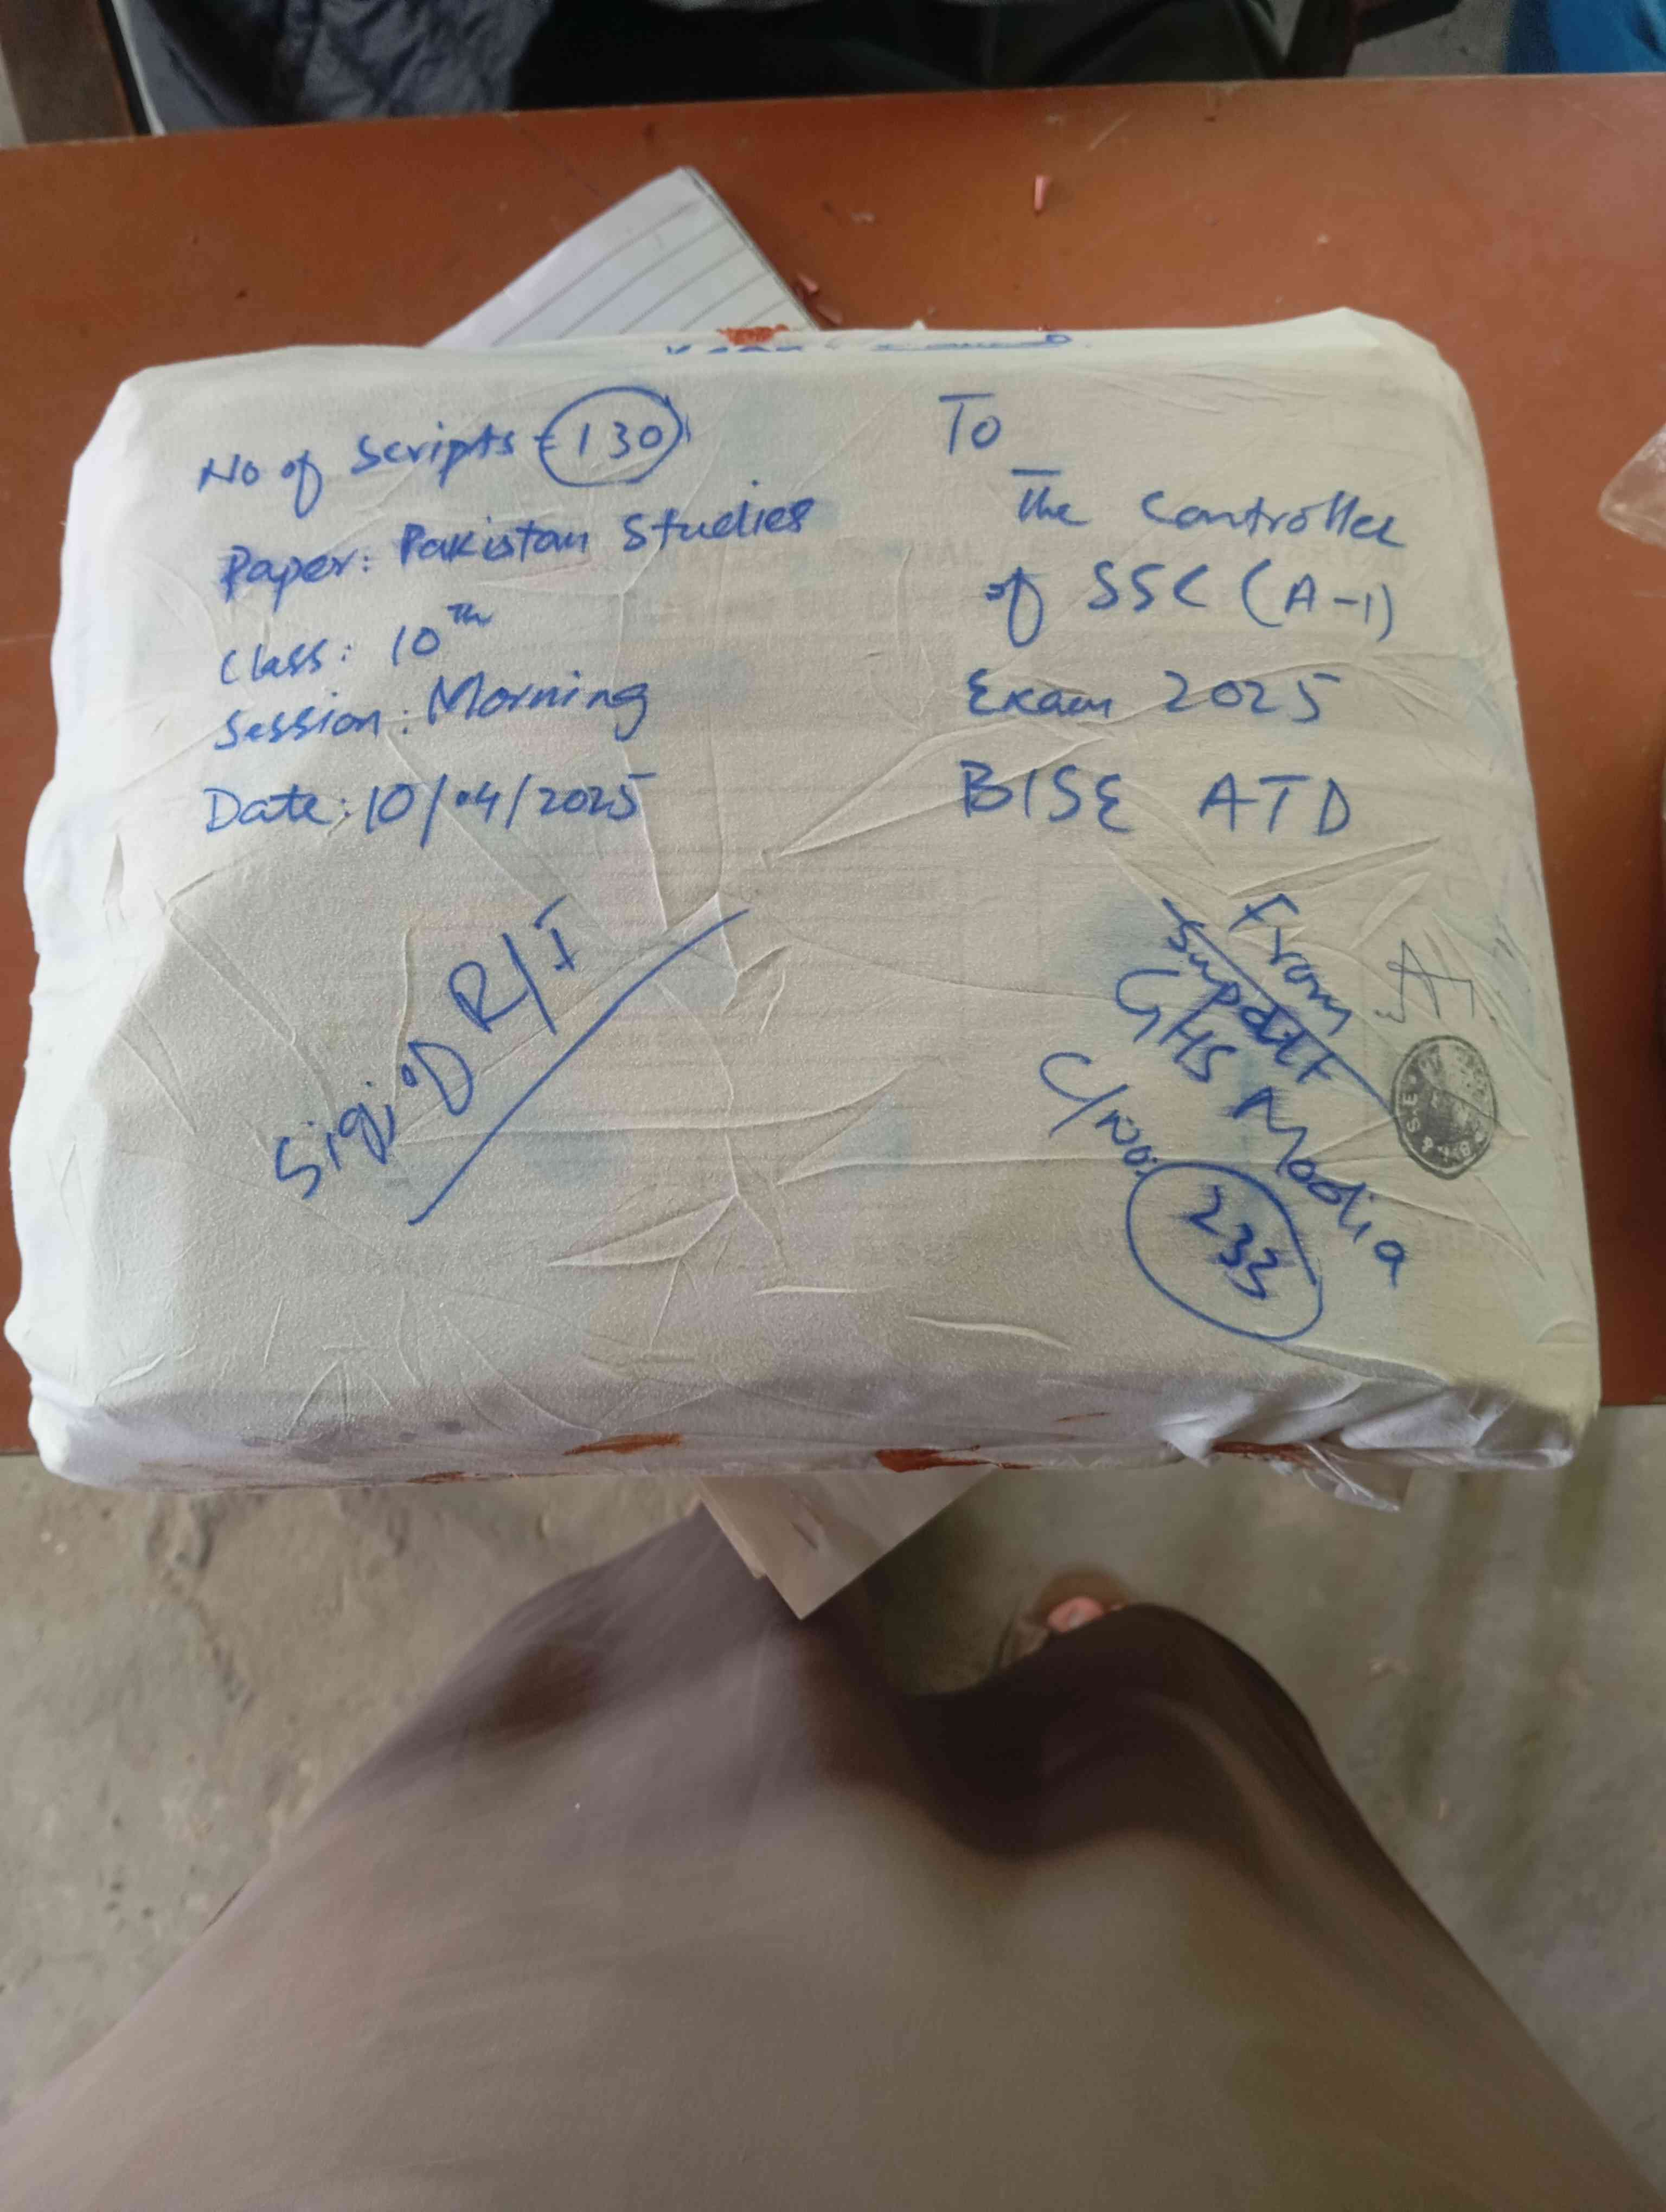 No of Scripts = 130
Paper: Pakistan Studies
Class: 10th
Session: Morning
Date: 10/04/2025
To
The Controller
of SSC (A-1)
Exam 2025
BISE ATD
R/I
From
Supdtt
GHS Moolia
C/No. 233